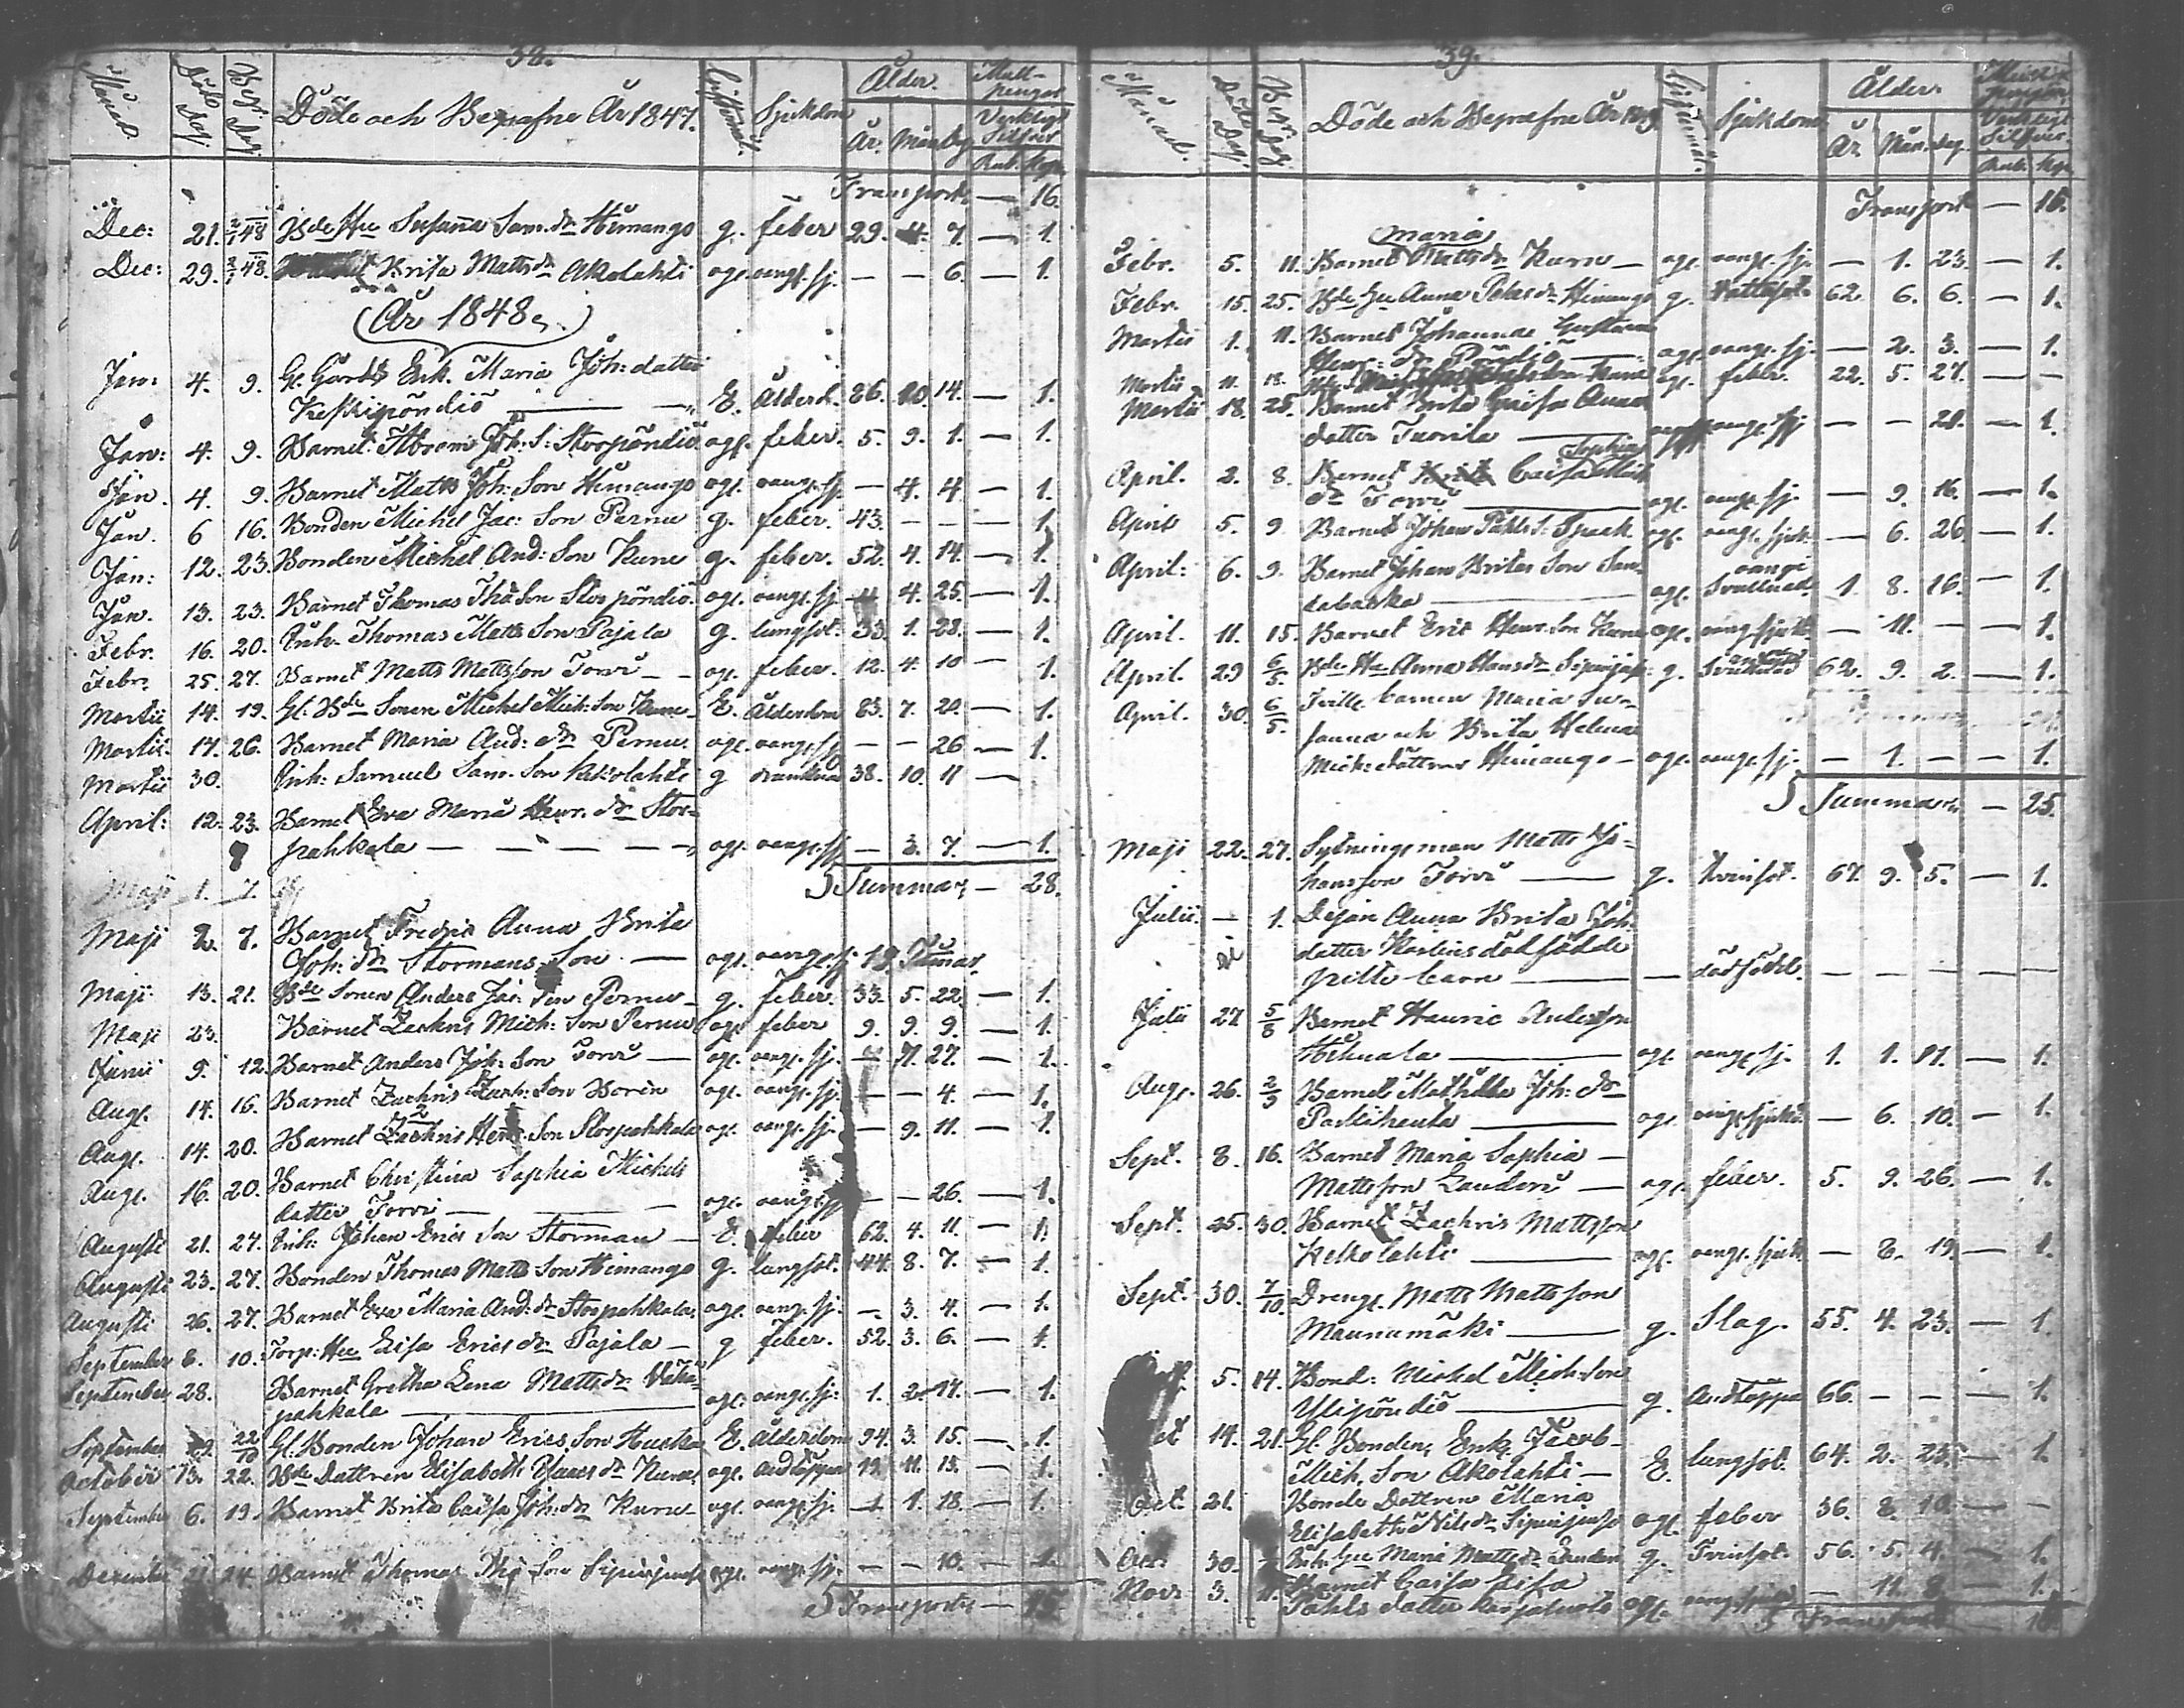 38.
Månad. Döde dag. Begr. dag. Döde och Begrafne År 1847. Giftomål. Sjukdom Ålder. År. Mån. Dag Mull-pengar Verkligt Silfver Rub. Kop.
Transport — 16.
Dec: 21. 2/1 48 Bde Hu Susanna Sam. dr Himango g. feber 29. 4. 7. — 1.
Dec: 29. 2/1 48. Brita Matts dr Akolahti ogf. oangf. sj. — — 6. — 1.
(År 1848.)
Jan: 4. 9. Gl. Gårds Enk. Maria Joh: datter
Keskipöndiö — E. Ålderd. 86. 10. 14. — 1.
Jan: 4. 9. Barnet Abram Joh: S: Storpöndiö ogf. feber. 5. 9. 1. — 1.
Jan. 4. 9. Barnet Matts Joh: Son Himango ogf. oang. sj. — 4. 4. — 1.
Jan. 6 16. Bonden Michel Jac: Son Pernu g. feber. 43. — — — 1.
Jan: 12. 23. Bonden Michel And: Son Kuru g. feber. 52. 4. 14. — 1.
Jan. 13. 23. Barnet Thomas Tho Son Storpöndiö. ogf. oangf. sj. 4. 25. — 1.
Febr. 16. 20. Inh. Thomas Matts Son Pajala g. lungsot. 33. 1. 28. — 1.
Febr. 25. 27. Barnet Matts Mattsson Torvi — og. feber. 12. 4. 10 — 1.
Martii 14. 19. Gl. Bde Sonen Michel Mich: Son Kuru E. Ålderdom 83. 7. 20. — 1.
Martii 17. 26. Barnet Maria And: dr Pernu. ogf. oangf. sj — — 26 — 1.
Martii 30. Inh: Samuel Sam. Son Kekolahti g drunknad 38. 10. 11 —
April: 12. 23. Barnet Eva Maria Henr. dr Stor-
pahkala — — — — ogf. oangf. sj — 3. 7. — 1.
Summa — 28.
Maji 1. 7.
Maji 2. 7. Barnet Fredrica Anna Brita
Joh: dr Stormans Son — ogf. oangf. sj. 19. Timar.
Maji 13. 21. Bde Sonen Anders Jac: Son Pernu — g. feber. 33. 5. 22. — 1.
Maji 23. Barnet Zachris Mich: Son Pernu ogf feber 9. 9. 9. — 1.
Junii 9. 12. Barnet Anders Joh: Son Torvi — ogf. oangf. sj. — 7. 27. — 1.
Aug. 14. 16. Barnet Zachris Zach: Son Borén ogf. oangf. sj. — — 4. — 1.
Aug. 14. 20. Barnet Zachris Henr Son Storpahkala ogf. oangf. sj. — 9. 11. — 1.
Aug. 16. 20. Barnet Christina Sophia Michels
datter Torvi — — ogf. oangf. sj — — 26. — 1.
Augusti 21. 27. Inh: Johan Erics Son Storman — E. feber 62. 4. 11. — 1.
Augusti 23. 27. Bonden Thomas Matts Son Himango g. lungsot. 44. 8. 7. — 1.
Augusti 26. 27. Barnet Eva Maria And: dr Storpahkala ogf. oang. sj. — 3. 4. — 1.
September 8. 10. Torp: Hu Lisa Erics dr Pajala — g feber. 52. 3. 6. — 1.
September 28. Barnet Gretha Lena Matts dr Vähä-
pahkala — ogf. oangf. sj. 1. 2. 17. — 1.
September 22/10 Gl. Bonden Johan Erics Son Huska E. Ålderdom 94. 3. 15. — 1.
October 13. 22. Bde Dattren Elisabeth Isaacs dr Kuru ogf. andtäppa 19. 11. 13. — 1.
September 6. 19. Barnet Brita Caisa Joh: dr Kuru — ogf. oangf. sj. — 1. 18. — 1.
December 21. 24. Barnet Thomas Tho Son Sipinpoik ogf. oangf. sj. — — 10. — 1.
Transport — 15.
39.
Månad. Döde dag. Begr. dag Döde och Begrafne År 1849 Giftomål. Sjukdom. Ålder. År. Mån. dag. Verkligt Silfver Rub. Kop.
Transport — 16.
Maria
Febr. 5. 11. Barnet Matts dr Kuru — ogf. oangf. sj. — 1. 23. — 1.
Febr. 15. 25. Bde Hu Anna Pehrs dr Himango g. Vattusot 62. 6. 6. — 1.
Martii 1. 11. Barnet Johanna Gustava
Henr: dr Pöndiö — ogf. oangf. sj. — 2. 3. — 1.
Martii 11. 18. Kuru og. feber. 22. 5. 27. — —
Martii 18. 25. Barnet Brita Caisa Anna
datter Tuorila — oangf. sj — — 21. — 1.
Sophia
April. 2. 8. Barnet Caisa Mich
dr Torvi — ogf. oangf. sj. — 9. 16. — 1.
April 5. 9. Barnet Johan Påhls S: Spuak ogf. oangf. sjuk. — 6. 26. — 1.
April: 6. 9. Barnet Johan Britas Son San-
dabacka — ogf. oangf. Svullnad. 1. 8. 16. — 1.
April. 11. 15. Barnet Eric Henr. Son Kuru ogf. oangf. sjuk. — 11. — — 1.
April. 29 6/5. Bde Hu Anna Hans dr Sipinpoik: g. Svullnad 62. 9. 2. — 1.
April. 30. 6/5. Tville barnen Maria Su-
sanna och Brita Helena
Mich: döttrar Himango — ogf. oangf. sj. — 1. — — 1.
Summa — 25.
Maji 22. 27. Sytningsman Matts Jo-
hansson Torvi — g. Tvinsot. 67. 9. 5. — 1.
Julii. — 1. Dejan Anna Brita Joh:
datter Karlens dödfödde
pilte barn — — dödfödd. — — — — —
Julii 27 5/8 Barnet Hauric Andersson
Hihnala — ogf oangf. sj. 1. 1. 11. — 1.
Aug. 26. 2/9 Barnet Mathilda Joh: dr
— ogf. oangf. sjukd. — 6. 10. — 1.
Sept. 8. 16. Barnet Maria Sophia —
Mattsson Landeri — ogf. feber. 5. 9. 26. — 1.
Sept. 25. 30. Barnet Zachris Mattsson
Kekolahti — ogf. oangf. sjuk — 8. 19. — 1.
Sept. 30. 7/10. Dreng. Matts Mattsson
Maunumäki — g. Slag. 55. 4. 23. — 1.
5. 14. Bond: Michel Mich: Son
Ylipöndiö — g. Andtäppa 66. — — — 1.
Oct 14. 21. Gl. Bonden, Enk. Jacob
Mich. Son Akolahti — E. lungsot. 64. 2. 23. — 1.
Oct. 21. Bonde Dottren Maria
Elisabeth Nils dr Sipinpoik ogf. feber 36. 8. 10. — —
Oct. 30. Inh. Hu Maria Matts dr g. Tvinsot. 56. 5. 4. — 1.
Novr 3. 11. Barnet Caisa Lisa
Påhls datter ogf. oangf. sjuk — 11. 8. — 1.
Transport — 16.